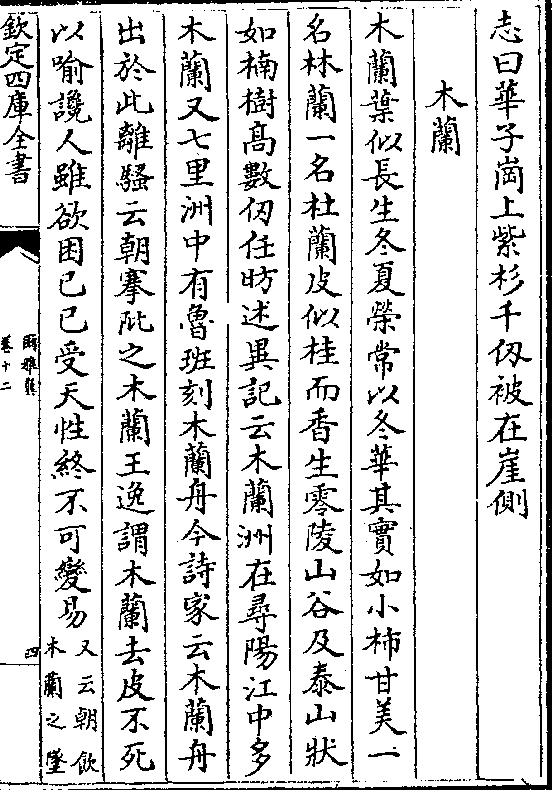 志曰華子崗上紫杉千仭被在崖側
木蘭
木蘭葉似長生冬夏榮常以冬華其實如小柿甘美一
名林蘭一名杜蘭皮似桂而香生零陵山谷及泰山狀
如楠樹髙數仭任昉述異記云木蘭洲在尋陽江中多
木蘭又七里洲中有魯班刻木蘭舟今詩家云木蘭舟
出於此離騷云朝搴阰之木蘭王逸謂木蘭去皮不死
以喻讒人雖欲困已已受天性終不可變易
又云朝飲
木蘭之墜
欽定四庫全書
爾雅翼
卷十二
四